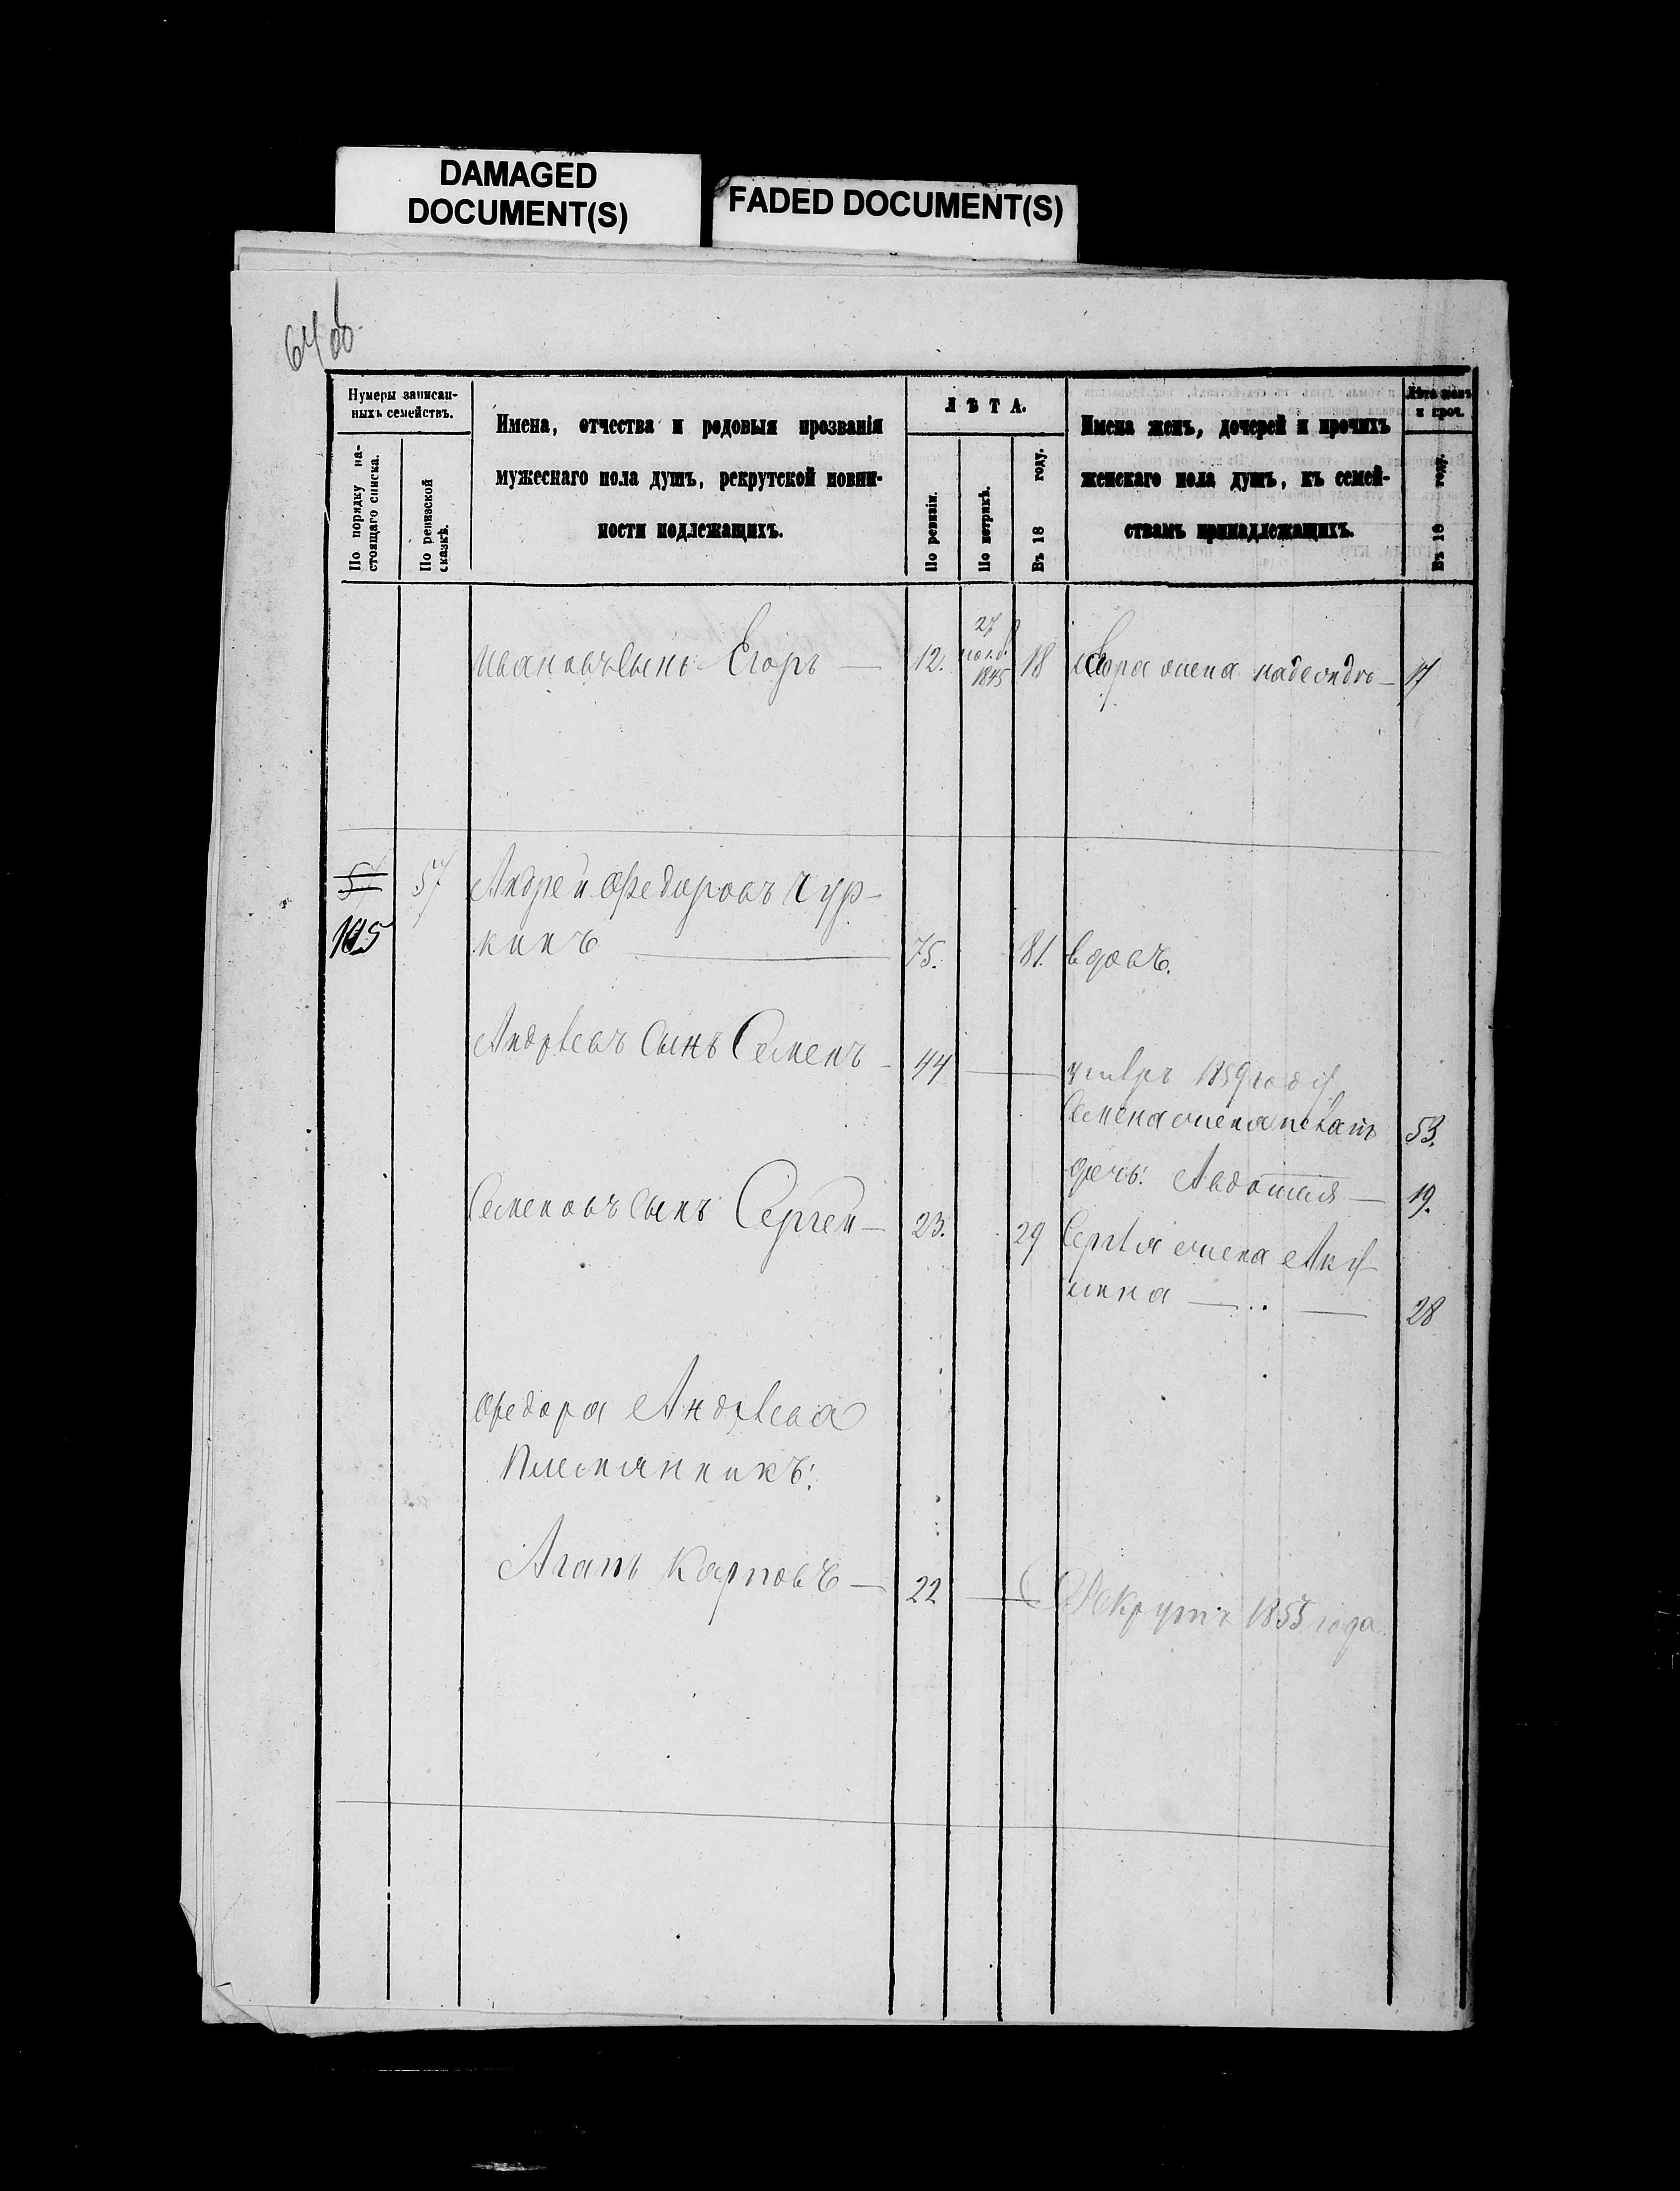 DAMAGED
DOCUMENT(S)
FADED DOCUMENT(S)
64 об.
Нумеры записан-
ныхъ семействъ.
По порядку на-
стоящаго списка.
По ревизской
сказкѣ.
Имена, отчества и родовыя прозванія
мужескаго пола душъ, рекрутской повин-
ности подлежащихъ.
ЛѢТА.
По ревизіи.
По метрикѣ.
Въ 18 году.
Имена женъ, дочерей и прочихъ
женскаго пола душъ, къ семей-
ствамъ принадлежащихъ.
Лѣта женъ
и проч.
Въ 18 году.
27
Ивановъ сынъ Егоръ — 12. нояб. 18 Егора жена Надежда — 17
1845
57 57 Андрей Федоровъ Чур-
105 кинъ — 75. 81. вдовъ.
Андреевъ сынъ Семенъ — 44 — умеръ 1859 году
Семена жена 53.
дочь: Авдотья — 19.
Семеновъ сынъ Сергей — 23. 29 Сергѣя жена Аку-
лина — 28
Федора Андреева
племянникъ:
Агапъ Карповъ — 22 — Рекрутъ 1855 года